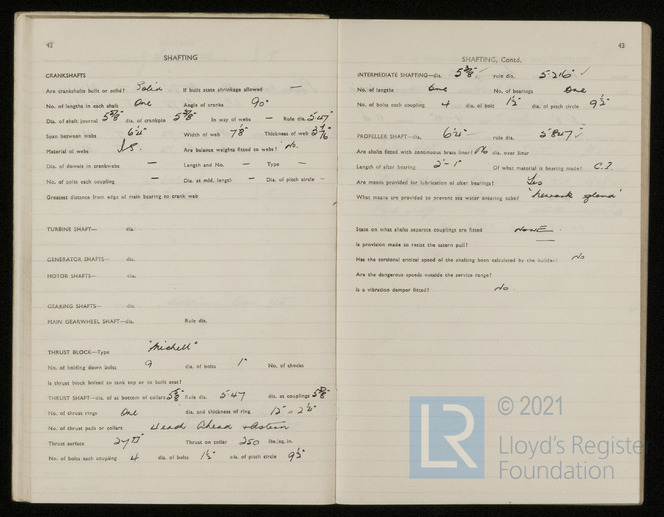 42
SHAFTING
CRANKSHAFTS
Are crankshafts built or solid? Solid If built state shrinkage allowed —
No. of lengths in each shaft One Angle of cranks 90°
Dia. of shaft journal 5 5/8" dia. of crankpin 5 5/8" In way of webs — Rule dia. 5.47
Span between webs 6¼" Width of web 7⅞" Thickness of web
Material of webs I.S. Are balance weights fitted to webs? No.
Dia. of dowels in crankwebs — Length and No. — Type —
No. of bolts each coupling — Dia. at mid. length — Dia. of pitch circle —
Greatest distance from edge of main bearing to crank web
TURBINE SHAFT— dia.
GENERATOR SHAFTS— dia.
MOTOR SHAFTS— dia.
GEARING SHAFTS— dia.
MAIN GEARWHEEL SHAFT—dia. Rule dia.
THRUST BLOCK—Type "Michell"
No. of holding down bolts 9 dia. of bolts 1" No. of chocks
Is thrust block bolted to tank top or to built seat?
THRUST SHAFT—dia. of at bottom of collars 5 5/8 Rule dia. 5.47 dia. at couplings 5 5/8"
No. of thrust rings One dia. and thickness of ring
No. of thrust pads or collars Head Ahead & Astern
Thrust surface Thrust on collar 250 lbs./sq. in.
No. of bolts each coupling 4 dia. of bolts 1½" dia. of pitch circle 9½"
43
SHAFTING, Contd.
INTERMEDIATE SHAFTING—dia. 5⅜" ✓ rule dia. 5.216" ✓
No. of lengths One No. of bearings One
No. of bolts each coupling 4 dia. of bolt 1½" dia. of pitch circle 9½"
PROPELLER SHAFT—dia. 6¼" ✓ rule dia. 5.847 ✓
Are shafts fitted with continuous brass liner? No dia. over liner
Length of after bearing 2'-1" Of what material is bearing made? C.I.
Are means provided for lubrication of after bearings? Yes
What means are provided to prevent sea water entering tube? "Newark gland"
State on what shafts separate couplings are fitted NONE.
Is provision made to resist the astern pull?
Has the torsional critical speed of the shafting been calculated by the builder? No
Are the dangerous speeds outside the service range?
Is a vibration damper fitted? No.
LR
© 2021
Lloyd's Register
Foundation